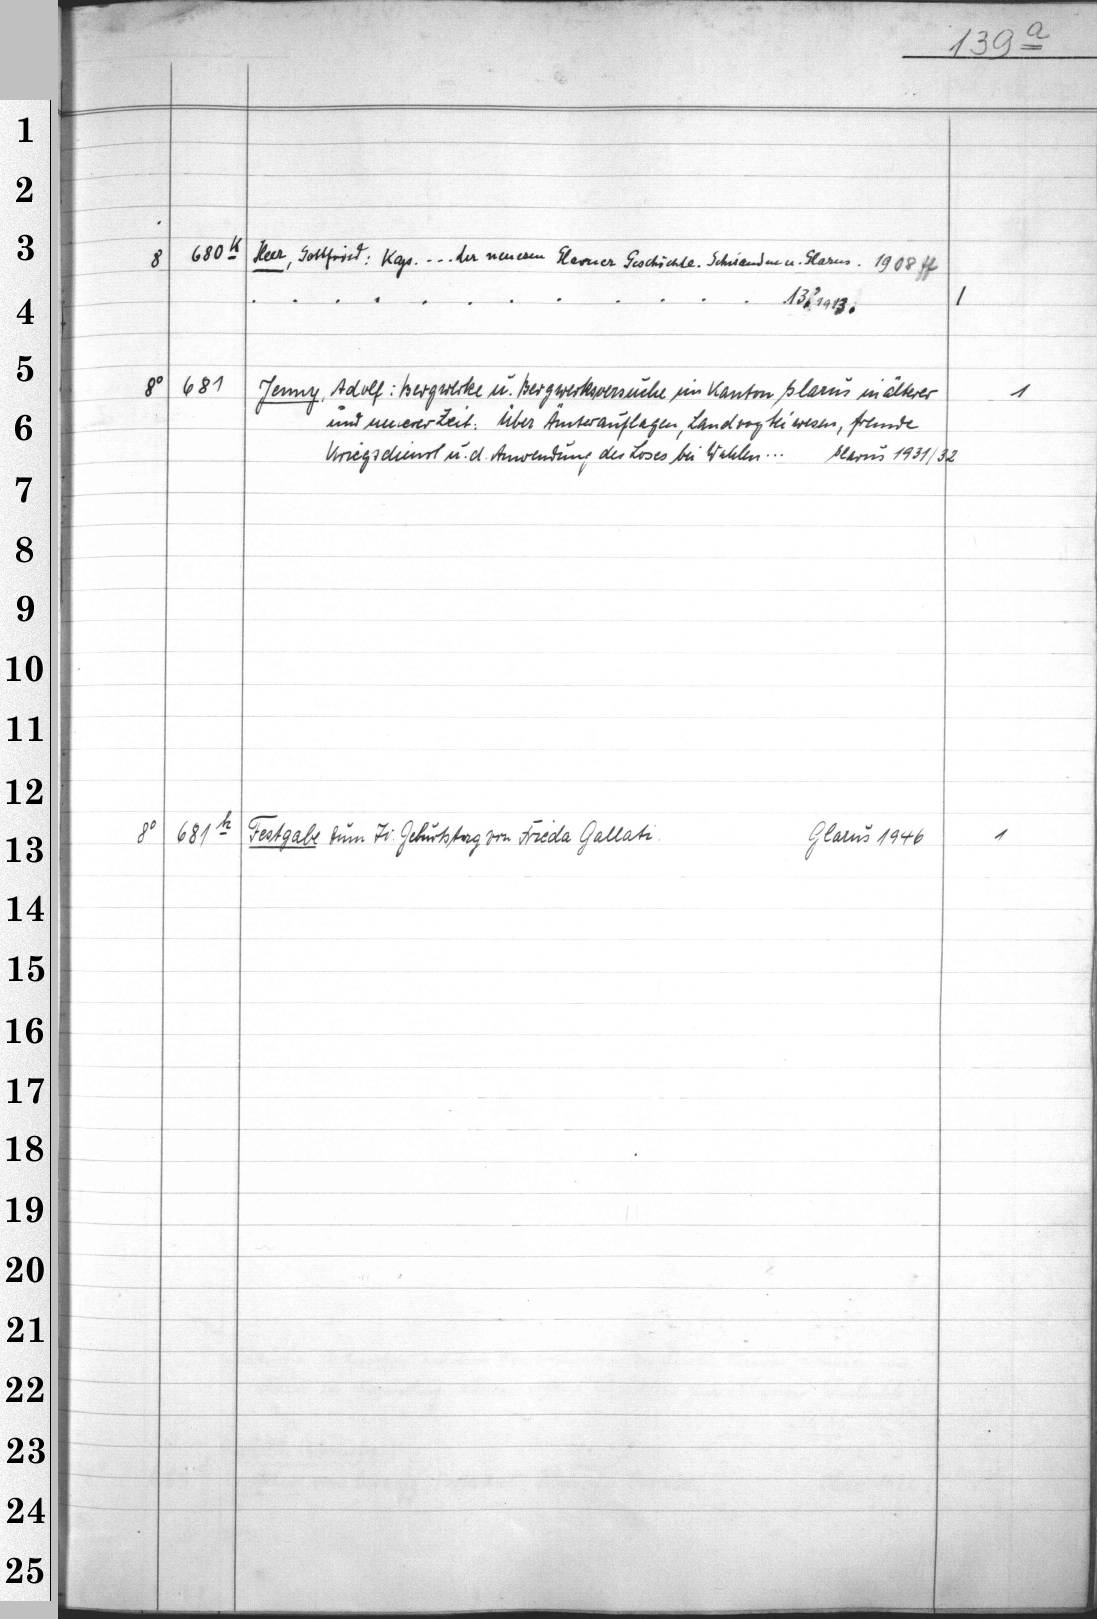 139a
1
2
3
8 680 k Heer, Gottfried: Kap. .... der neueren Glarner Geschichte. Schwanden u. Glarus. 1908 ff
4
. . . . . . . . . . . . 1913. 1
5
8° 681 Jenny, Adolf: Bergwerke u. Bergwerksversuche im Kanton Glarus in älterer 1
6
und neuerer Zeit. Über Ämterauflagen, Landvogteiwesen, fremde
Kriegsdienst u. d. Anwendung des Loses bei Wahlen ... Glarus 1931/32
7
8
9
10
11
12
13
8° 681 k Festgabe zum 70. Geburtstag von Frieda Gallati. Glarus 1946 1
14
15
16
17
18
19
20
21
22
23
24
25